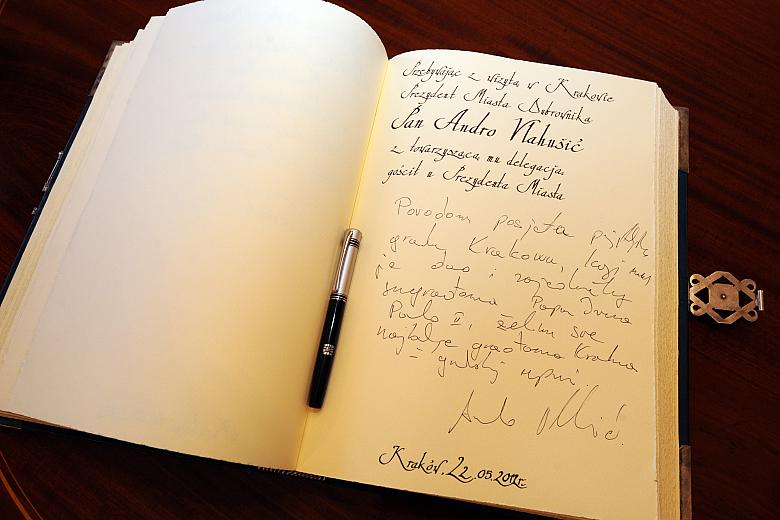 Przebywając z wizytą w Krakowie
Prezydent Miasta Dubrownika
Pan Andro Vlahušić
z towarzyszącą mu delegacją,
gościł u Prezydenta Miasta
Povodom posjeta
gradu Krakowu, koji nam
je dao i
sugrađana Papu Ivana
Pavla II, želim sve
najbolje građanima Krakowa
i gradskoj upravi.
Kraków, 22.05.2012r.